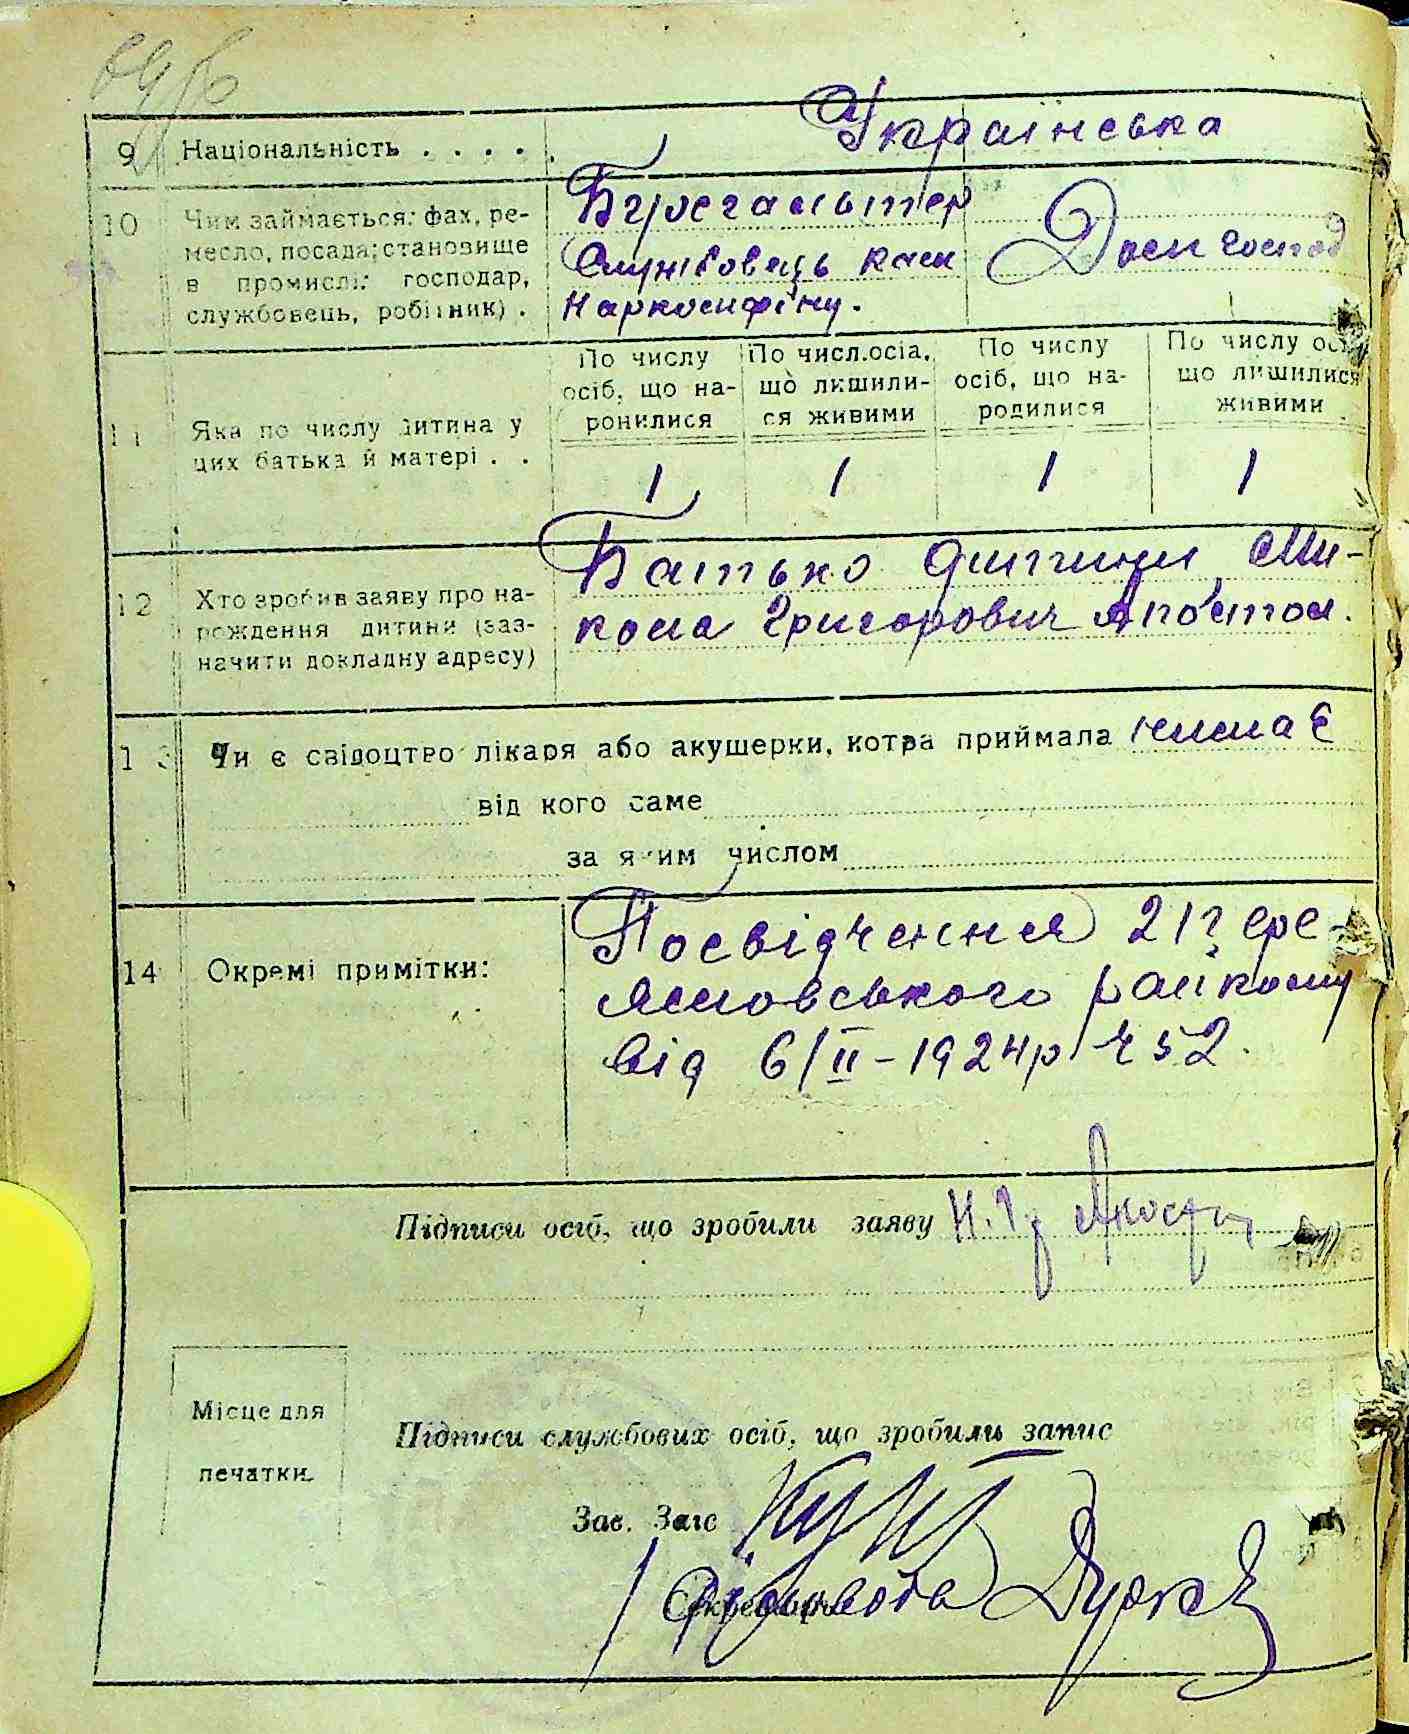 9 Національність . . . . . Українська
10 Чим займається: фах, ре-
месло, посада; становище
в промислі: господар,
службовець, робітник) .
Бухгальтер
Службовець каси
Наркомфіну.
Дом господ
11 Яка по числу дитина у
цих батька й матері . .
По числу
осіб, що на-
ронилися
По числ.осіа,
що лишили-
ся живими
По числу
осіб, що на-
родилися
По числу осі
що лишилися
живими
1 1 1 1
12 Хто зробив заяву про на-
рождення дитини (заз-
начити докладну адресу)
Батько дитини, Ми-
кола Григорович Апостол.
13 Чи є свідоцтво лікаря або акушерки, котра приймала немає
від кого саме
за яким числом
14 Окремі примітки:
Посвідчення
райкому
від 6/II-1924р Ч 52.
Підписи осіб, що зробили заяву
Місце для
печатки
Підписи службових осіб, що зробили запис
Зав. Загс
Секретарь